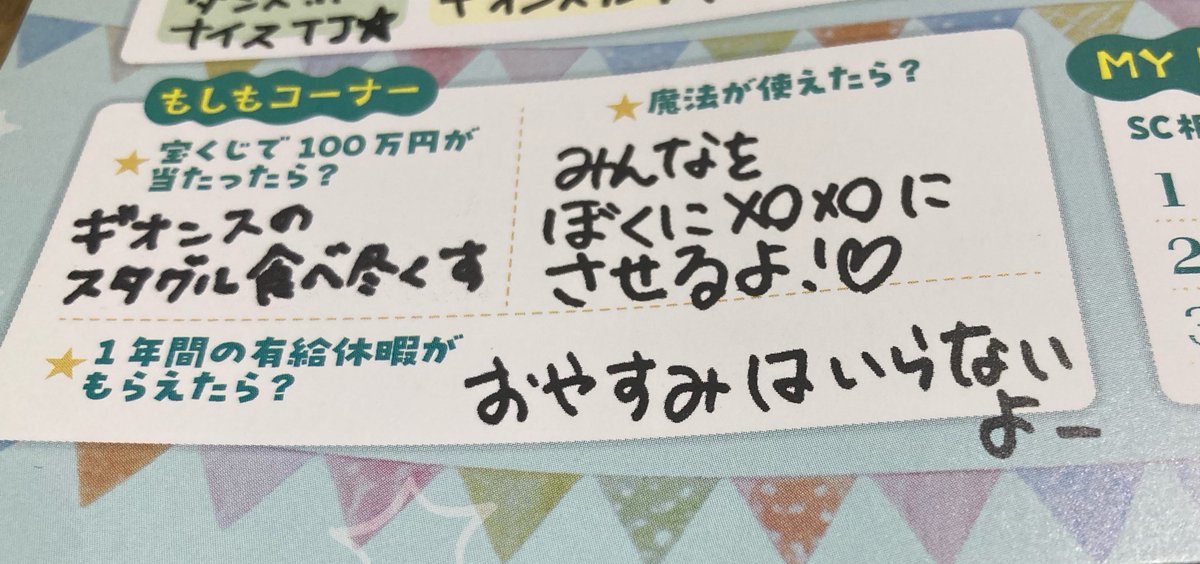 ナイスTJ★
もしもコーナー
★宝くじで100万円が
当たったら?
ギオンスの
スタグル食べ尽くす
★魔法が使えたら?
みんなを
ぼくにXOXOに
させるよ!♡
★1年間の有給休暇が
もらえたら?
おやすみはいらない
よー
MY
SC相
1
2
3